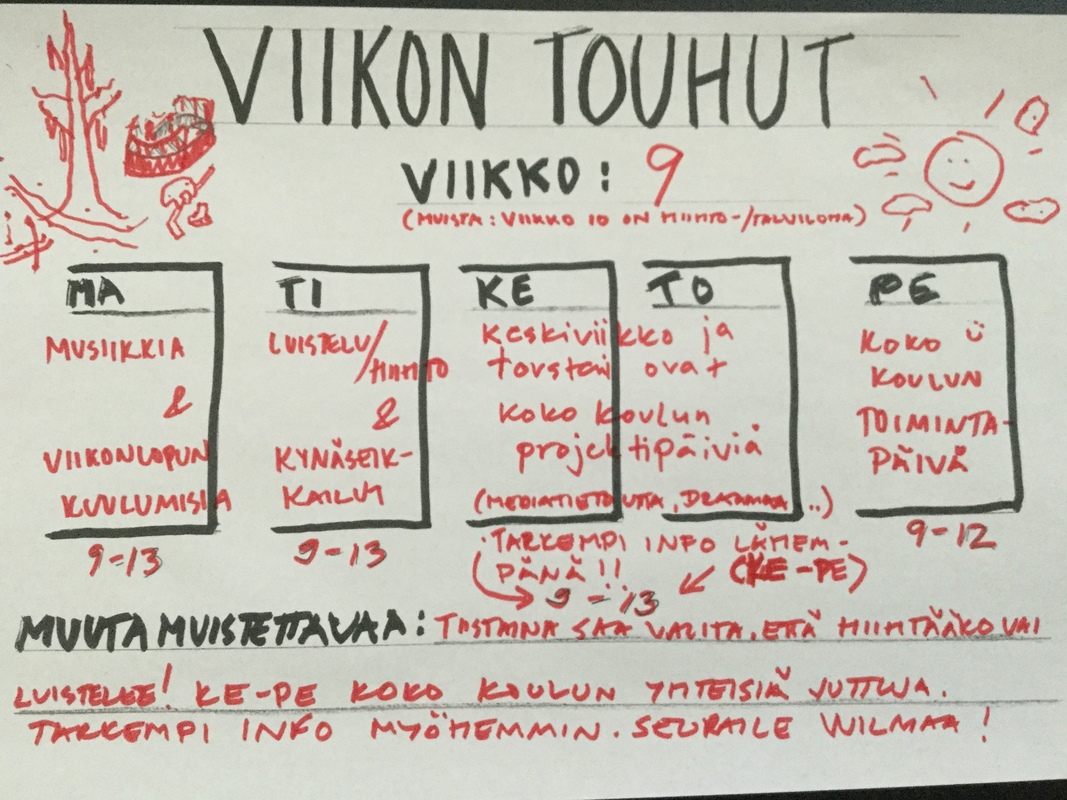 VIIKON TOUHUT
VIIKKO: 9
(MUISTA: VIIKKO 10 ON HIIHTO-/TALVILOMA)
MA
MUSIIKKIA
&
VIIKONLOPUN
KUULUMISIA
9-13
TI
LUISTELU/
HIIHTO
&
KYNÄSEIK-
KAILUT
9-13
KE TO
Keskiviikko ja
torstai ovat
koko koulun
projektipäiviä
(MEDIATIETOUTTA, DRAAMAA...)
TARKEMPI INFO LÄHEM-
PÄNÄ!! (KE-PE)
9-13
PE
KOKO
KOULUN
TOIMINTA-
PÄIVÄ
9-12
MUUTA MUISTETTAVAA: TIISTAINA SAA VALITA, ETTÄ HIIHTÄÄKO VAI
LUISTELEE! KE-PE KOKO KOULUN YHTEISIÄ JUTTUJA.
TARKEMPI INFO MYÖHEMMIN. SEURAILE WILMAA!